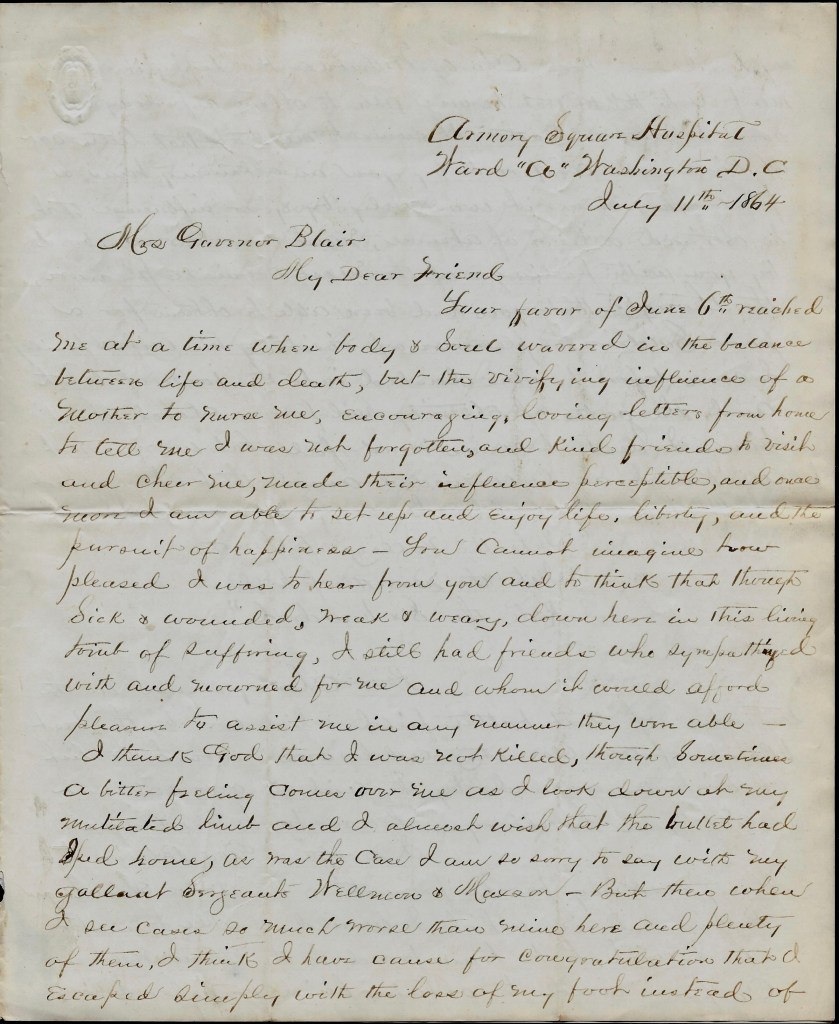 Armory Square Hospital
Ward "A" Washington D.C
July 11th 1864
Mrs Govenor Blair
My Dear Friend
Your favor of June 6th reached
me at a time when body & Soul wavered in the balance
between life and death, but the vivifying influence of a
Mother to nurse me, encouraging, loving letters from home
to tell me I was not forgotten, and kind friends to visit
and cheer me, made their influence perceptible, and once
more I am able to set up and enjoy life, liberty, and the
pursuit of happiness — You cannot imagine how
pleased I was to hear from you and to think that though
Sick & wounded, weak & weary, down here in this living
tomb of suffering, I still had friends who sympathized
with and mourned for me and whom it would afford
pleasure to assist me in any manner they were able —
I thank God that I was not killed, though Sometimes
a bitter feeling comes over me as I look down at my
mutilated limb and I almost wish that the bullet had
Sped home, as was the case I am so sorry to say with my
gallant Sergeants Wellmon & Maxson — But then when
I see cases so much worse than mine here and plenty
of them, I think I have cause for congratulation that I
escaped simply with the loss of my foot instead of